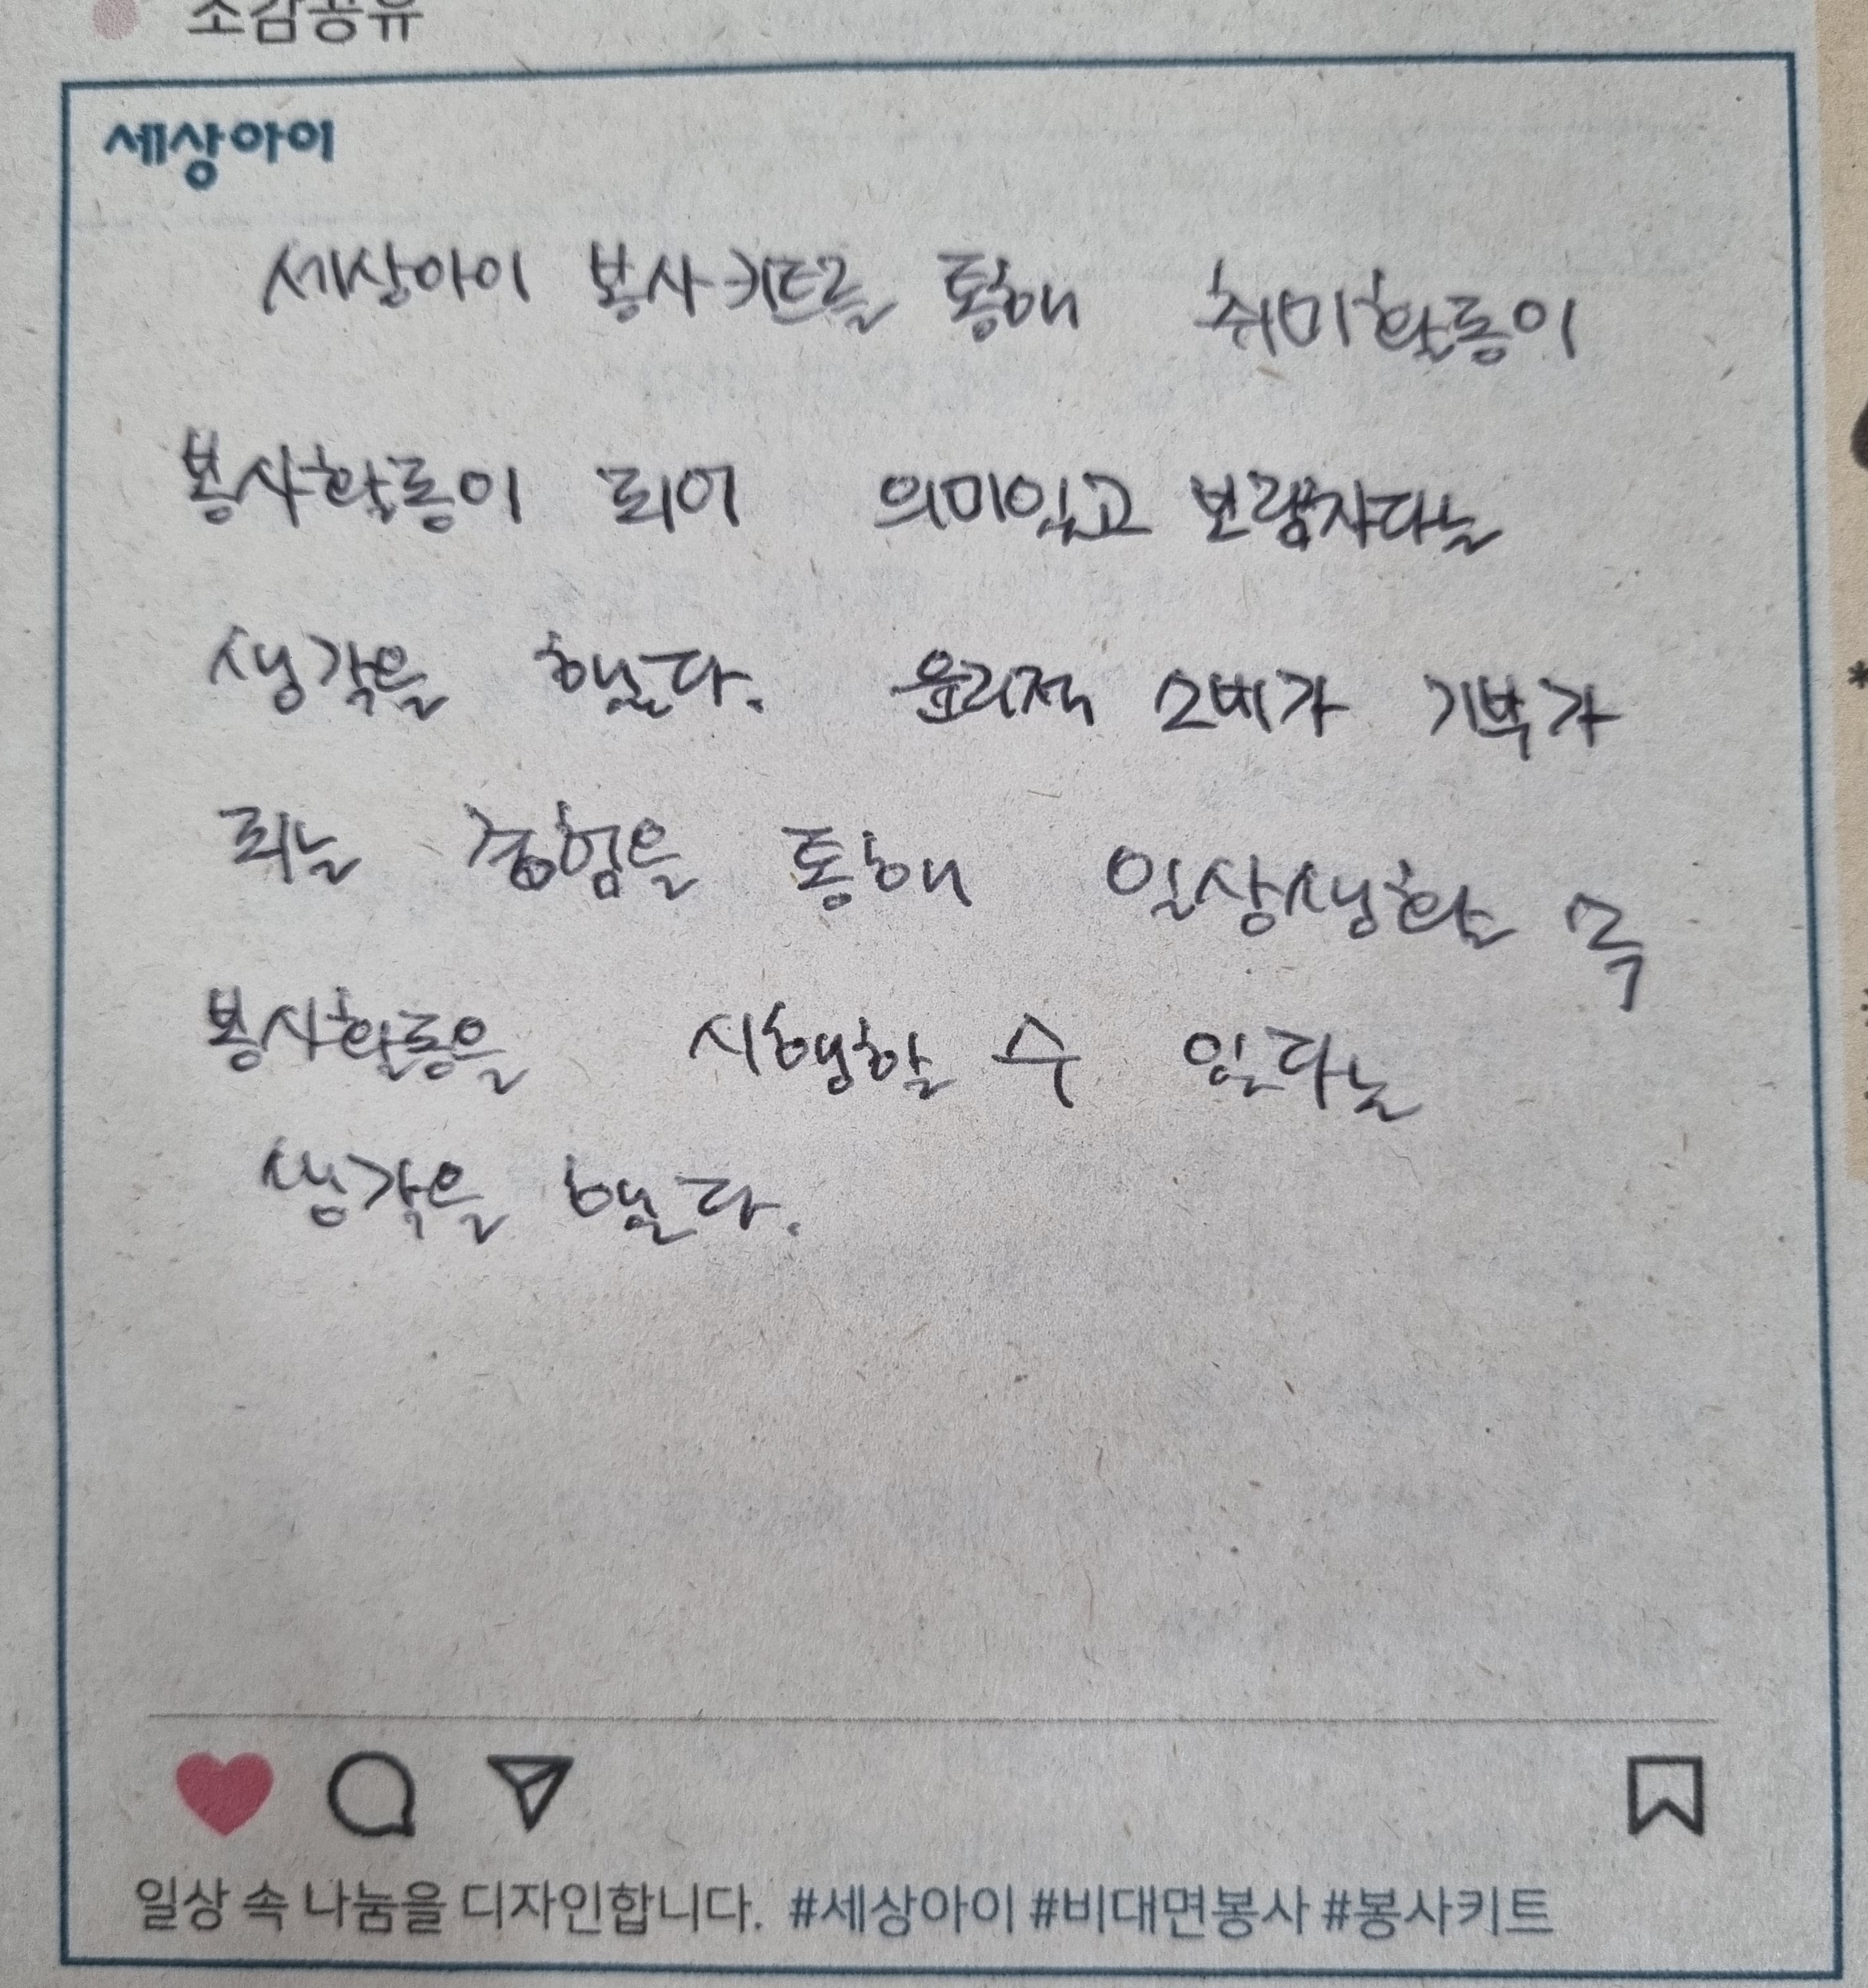 소감공유
세상아이
세상아이 봉사키트를 통해 취미활동이
봉사활동이 되어 의미있고 보람차다는
생각을 했다. 윤리적 소비가 기부가
되는 경험을 통해 일상생활 속
봉사활동을 시행할 수 있다는
생각을 했다.
일상 속 나눔을 디자인합니다. #세상아이 #비대면봉사 #봉사키트